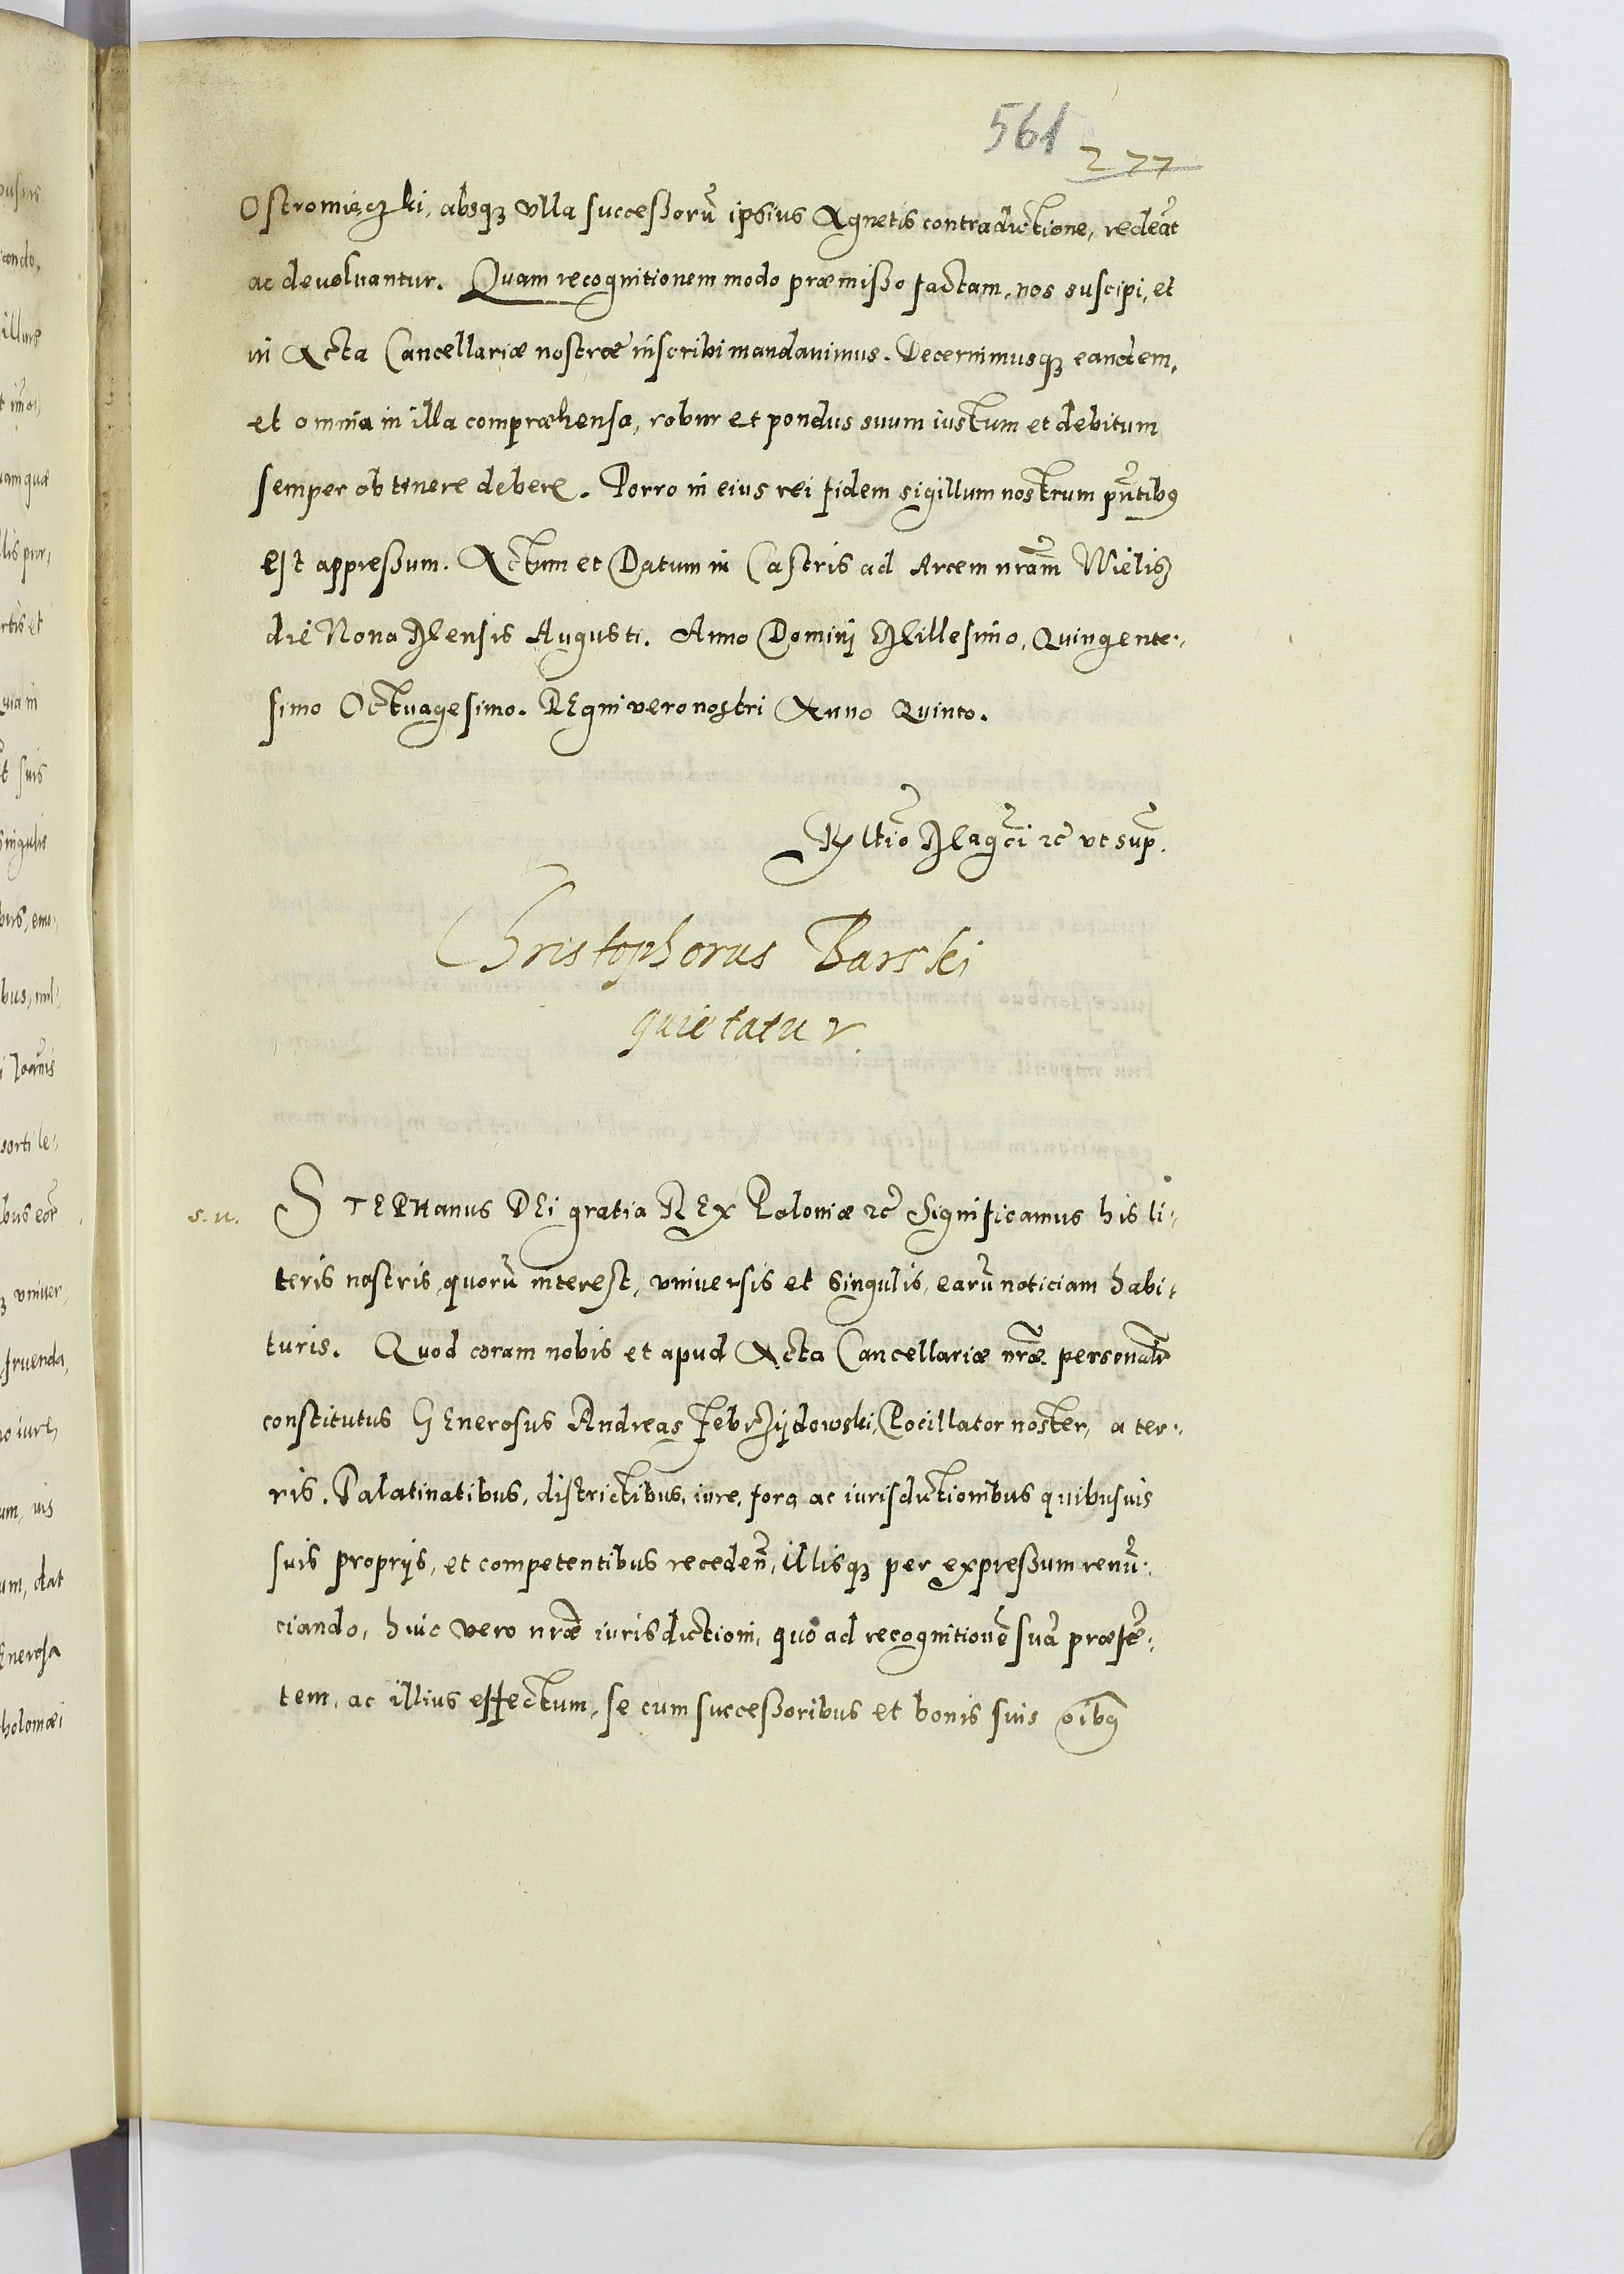 561
277
Ostromięczki, absqȝ vlla successorū ipsius Agnetis contradictione, redeāt
ac deuoluantur. Quam recognitionem modo præmisso factam, nos suscipi, et
in Acta Cancellariæ nostræ inscribi mandauimus. Decernimusqȝ eandem,
et omnia in illa compræhensa, robur et pondus suum iustum et debitum
semper obtinere debere. Porro in eius rei fidem sigillum nostrum pn̄tibꝰ
est appressum. Actum et Datum in Castris ad Arcem nr̄am Wielisz
die Nona Mensis Augusti. Anno Domini Millesimo, Quingente-
simo Octuagesimo. REgni vero nostri Anno Quinto.
Rl̄tio Maḡci ꝛc̄ vt sup̄.
Christophorus Barski
quietatur
s. n. STEPHanus DEi gratia REx Poloniæ ꝛc̄ Significamus his li-
teris nostris, quorū interest, vniuersis et singulis, earū noticiam habi-
turis. Quod coram nobis et apud Acta Cancellariæ nr̄æ personalr̄
constitutus GEnerosus Andreas Jebrzydowski, Pocillator noster, a ter-
ris. Palatinatibus, districtibus, iure, foro ac iurisdictionibus quibusuis
suis proprijs, et competentibus receden̄, illisqȝ per expressum renū-
ciando, huic vero nr̄æ iurisdictioni, quo ad recognitionē suā præsē-
tem, ac illius effectum, se cum successoribus et bonis suis oībꝰ